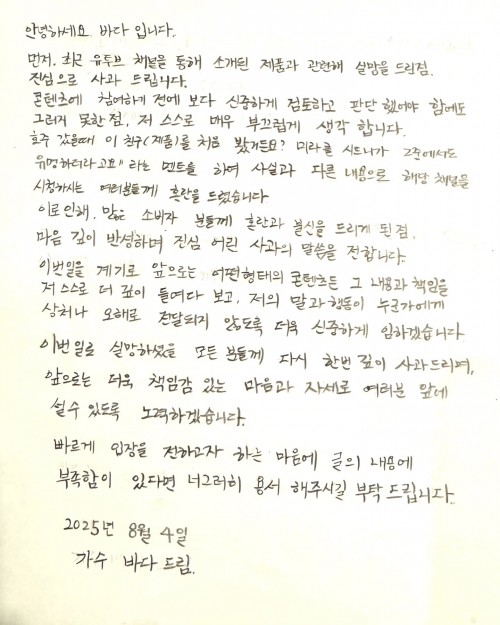 안녕하세요. 바다 입니다.
먼저. 최근 유튜브 채널을 통해 소개된 제품과 관련해 실망을 드린점.
진심으로 사과 드립니다.
콘텐츠에 참여하기 전에 보다 신중하게 검토하고 판단 했어야 함에도
그러지 못한 점, 저 스스로 매우 부끄럽게 생각 합니다.
호주 갔을때 이 친구(제품)를 처음 봤거든요? 미라클 시드니가 2존에서도
유명하더라고요" 라는 멘트를 하여 사실과 다른 내용으로 해당 채널을
시청하시는 여러분들께 혼란을 드렸습니다
이로 인해, 많은 소비자 분들께 혼란과 불신을 드리게 된점.
마음 깊이 반성하며 진심 어린 사과의 말씀을 전합니다.
이번일을 계기로 앞으로는 어떤형태의 콘텐츠든 그 내용과 책임을
저 스스로 더 깊이 들여다 보고, 저의 말과 행동이 누군가에게
상처나 오해로 전달되지 않도록 더욱 신중하게 임하겠습니다
이번일로 실망하셨을 모든 분들께 다시 한번 깊이 사과드리며,
앞으로는 더욱 책임감 있는 마음과 자세로 여러분 앞에
설수 있도록 노력하겠습니다.
빠르게 입장을 전하고자 하는 마음에 글의 내용에
부족함이 있다면 너그러히 용서 해주시길 부탁 드립니다.
2025년 8월 4일
가수 바다 드림.